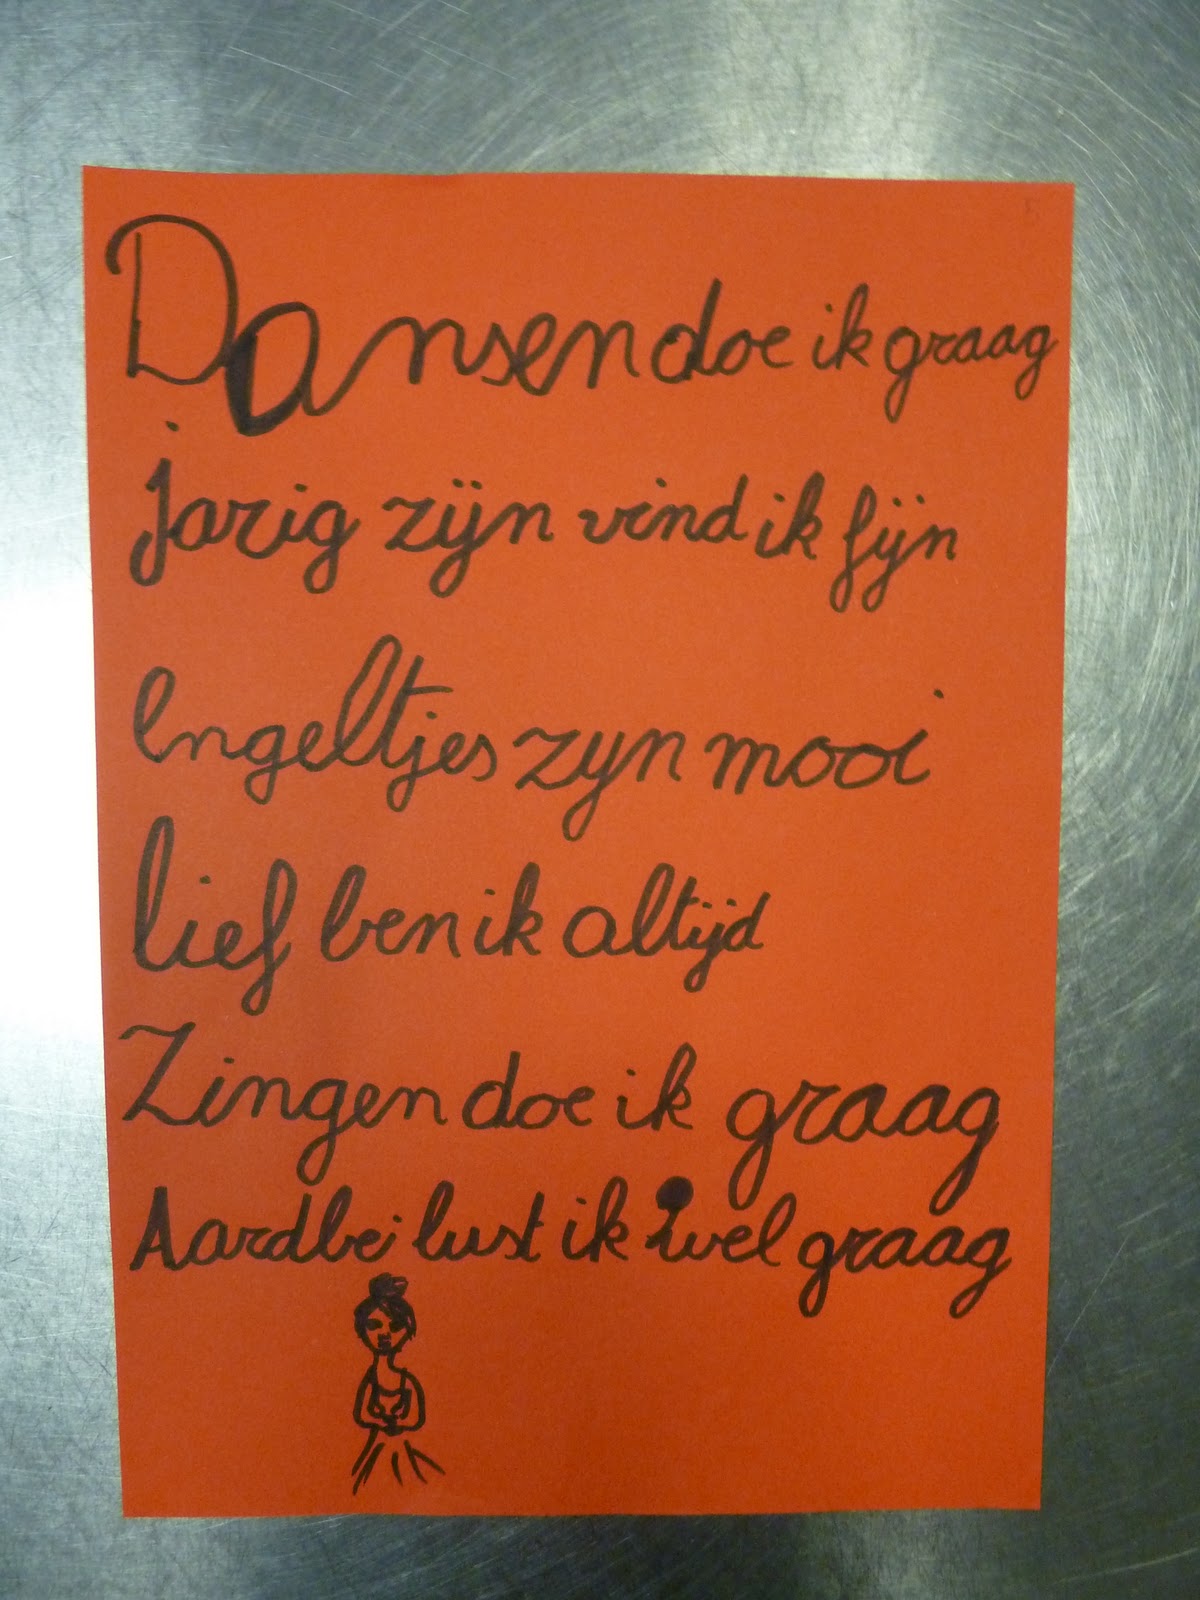 Dansen doe ik graag
jarig zijn vind ik fijn
Engeltjes zyn mooi
lief ben ik altijd
Zingen doe ik graag
Aardbei lust ik wel graag